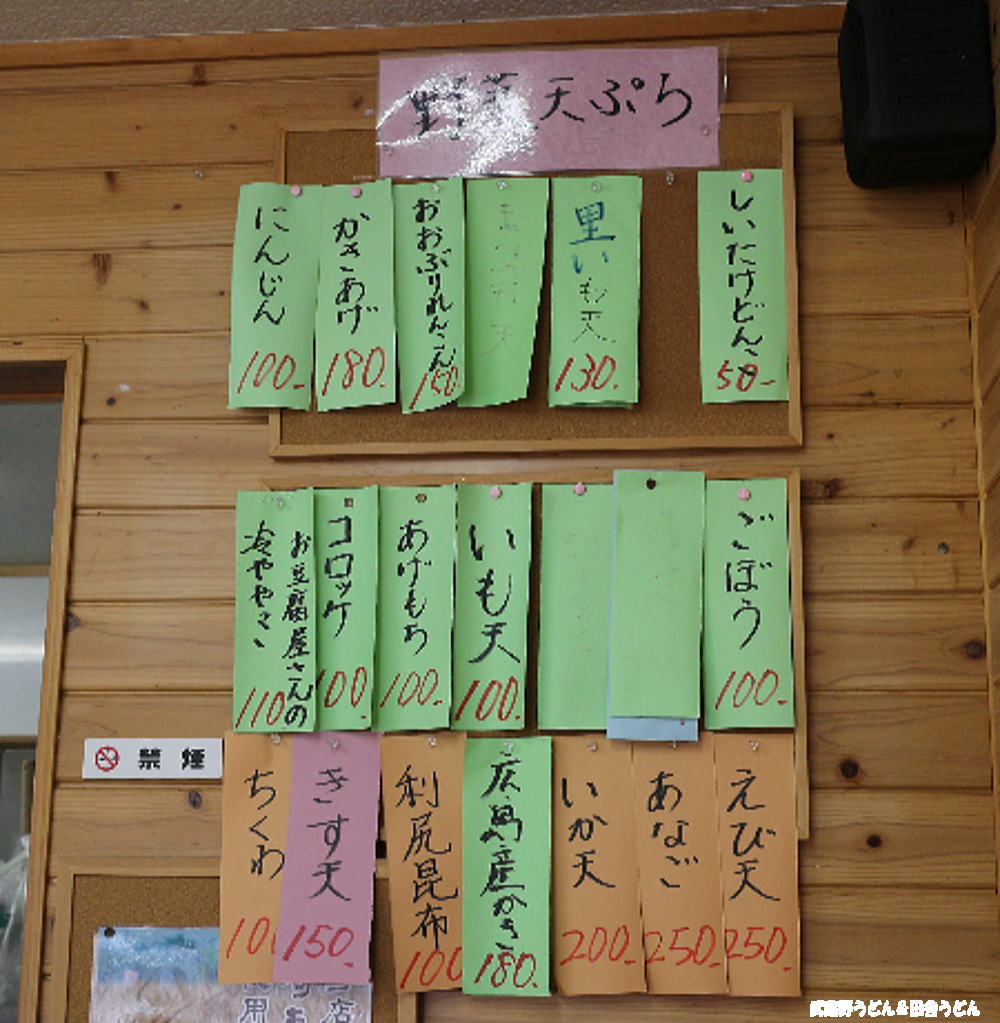 野菜天ぷら
しいたけどんこ
50-
里いも天
130.
おおぶりれんこん
150
かきあげ
180.
にんじん
100-
ごぼう
100-
いも天
100.
あげもち
100-
コロッケ
100
お豆腐屋さんの
冷ややっこ
110
えび天
250-
あなご
250-
いか天
200-
広島産かき
180.
利尻昆布
100
きす天
150-
ちくわ
100
禁煙
武蔵野うどん&田舎うどん